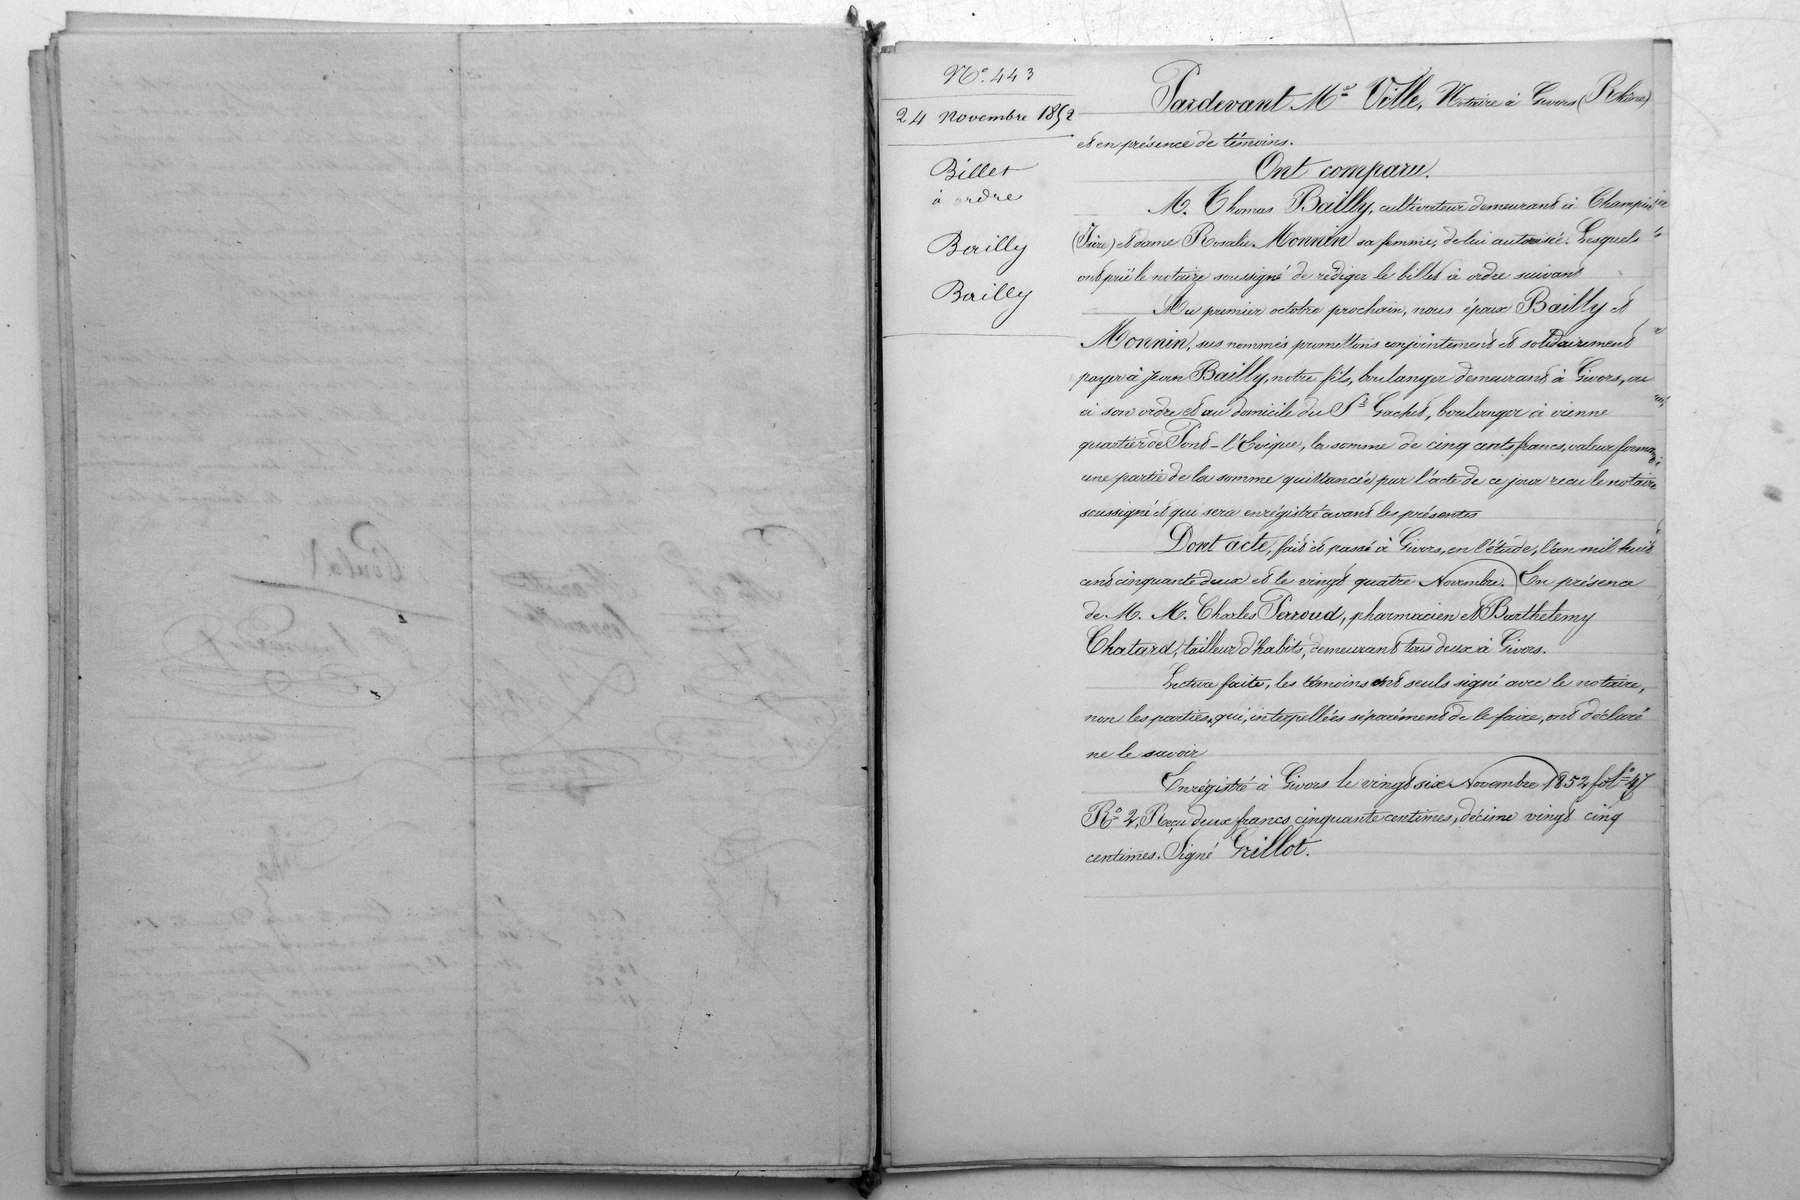 N°. 443
24 Novembre 1852
Billet
à ordre
Bailly
Bailly
Pardevant Me Ville, Notaire à Givors (Rhône)
et en présence de témoins.
Ont comparu.
M. Thomas Bailly, cultivateur demeurant à Champier
(Isère) et dame Rosalie Monnin sa femme, de lui autorisée. Lesquels
ont prié le notaire soussigné de rédiger le billet à ordre suivant
Au premier octobre prochain, nous époux Bailly et
Monnin, sus nommés promettons conjointement et solidairement
payer à Jean Bailly, notre fils, boulanger demeurant à Givors, ou
à son ordre et au domicile du Sr Gachet, boulanger à vienne
quartier de Pont-l'Evêque, la somme de cinq cents francs, valeur formant
une partie de la somme quittancée par l'acte de ce jour reçu le notaire
soussigné et qui sera enrégistré avant les présentes
Dont acte, fait et passé à Givors, en l'étude, l'an mil huit
cent cinquante deux et le vingt quatre Novembre. En présence
de M. M. Charles Perroud, pharmacien et Barthelemy
Chatard, tailleur d'habits, demeurant tous deux à Givors.
Lecture faite, les témoins ont seuls signé avec le notaire,
non les parties, qui, interpellées séparément de le faire, ont déclaré
ne le savoir
Enrégistré à Givors le vingt six Novembre 1852 fol° 47
R° 2, Reçu deux francs cinquante centimes, décime vingt cinq
centimes. Signé Grillot.